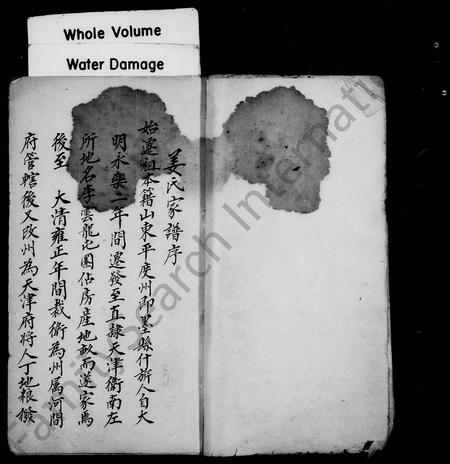 Whole Volume
Water Damage
姜氏家譜序
始遷祖本籍山東平度州即墨縣什旂人自大
明永樂二年間遷發至直隷天津衛南左
所地名李雲龍屯圈佔房産地畝而遂家焉
後至 大清雍正年間裁衛為州属河間
府管轄後又改州為天津府將人丁地粮撥
FamilySearch International